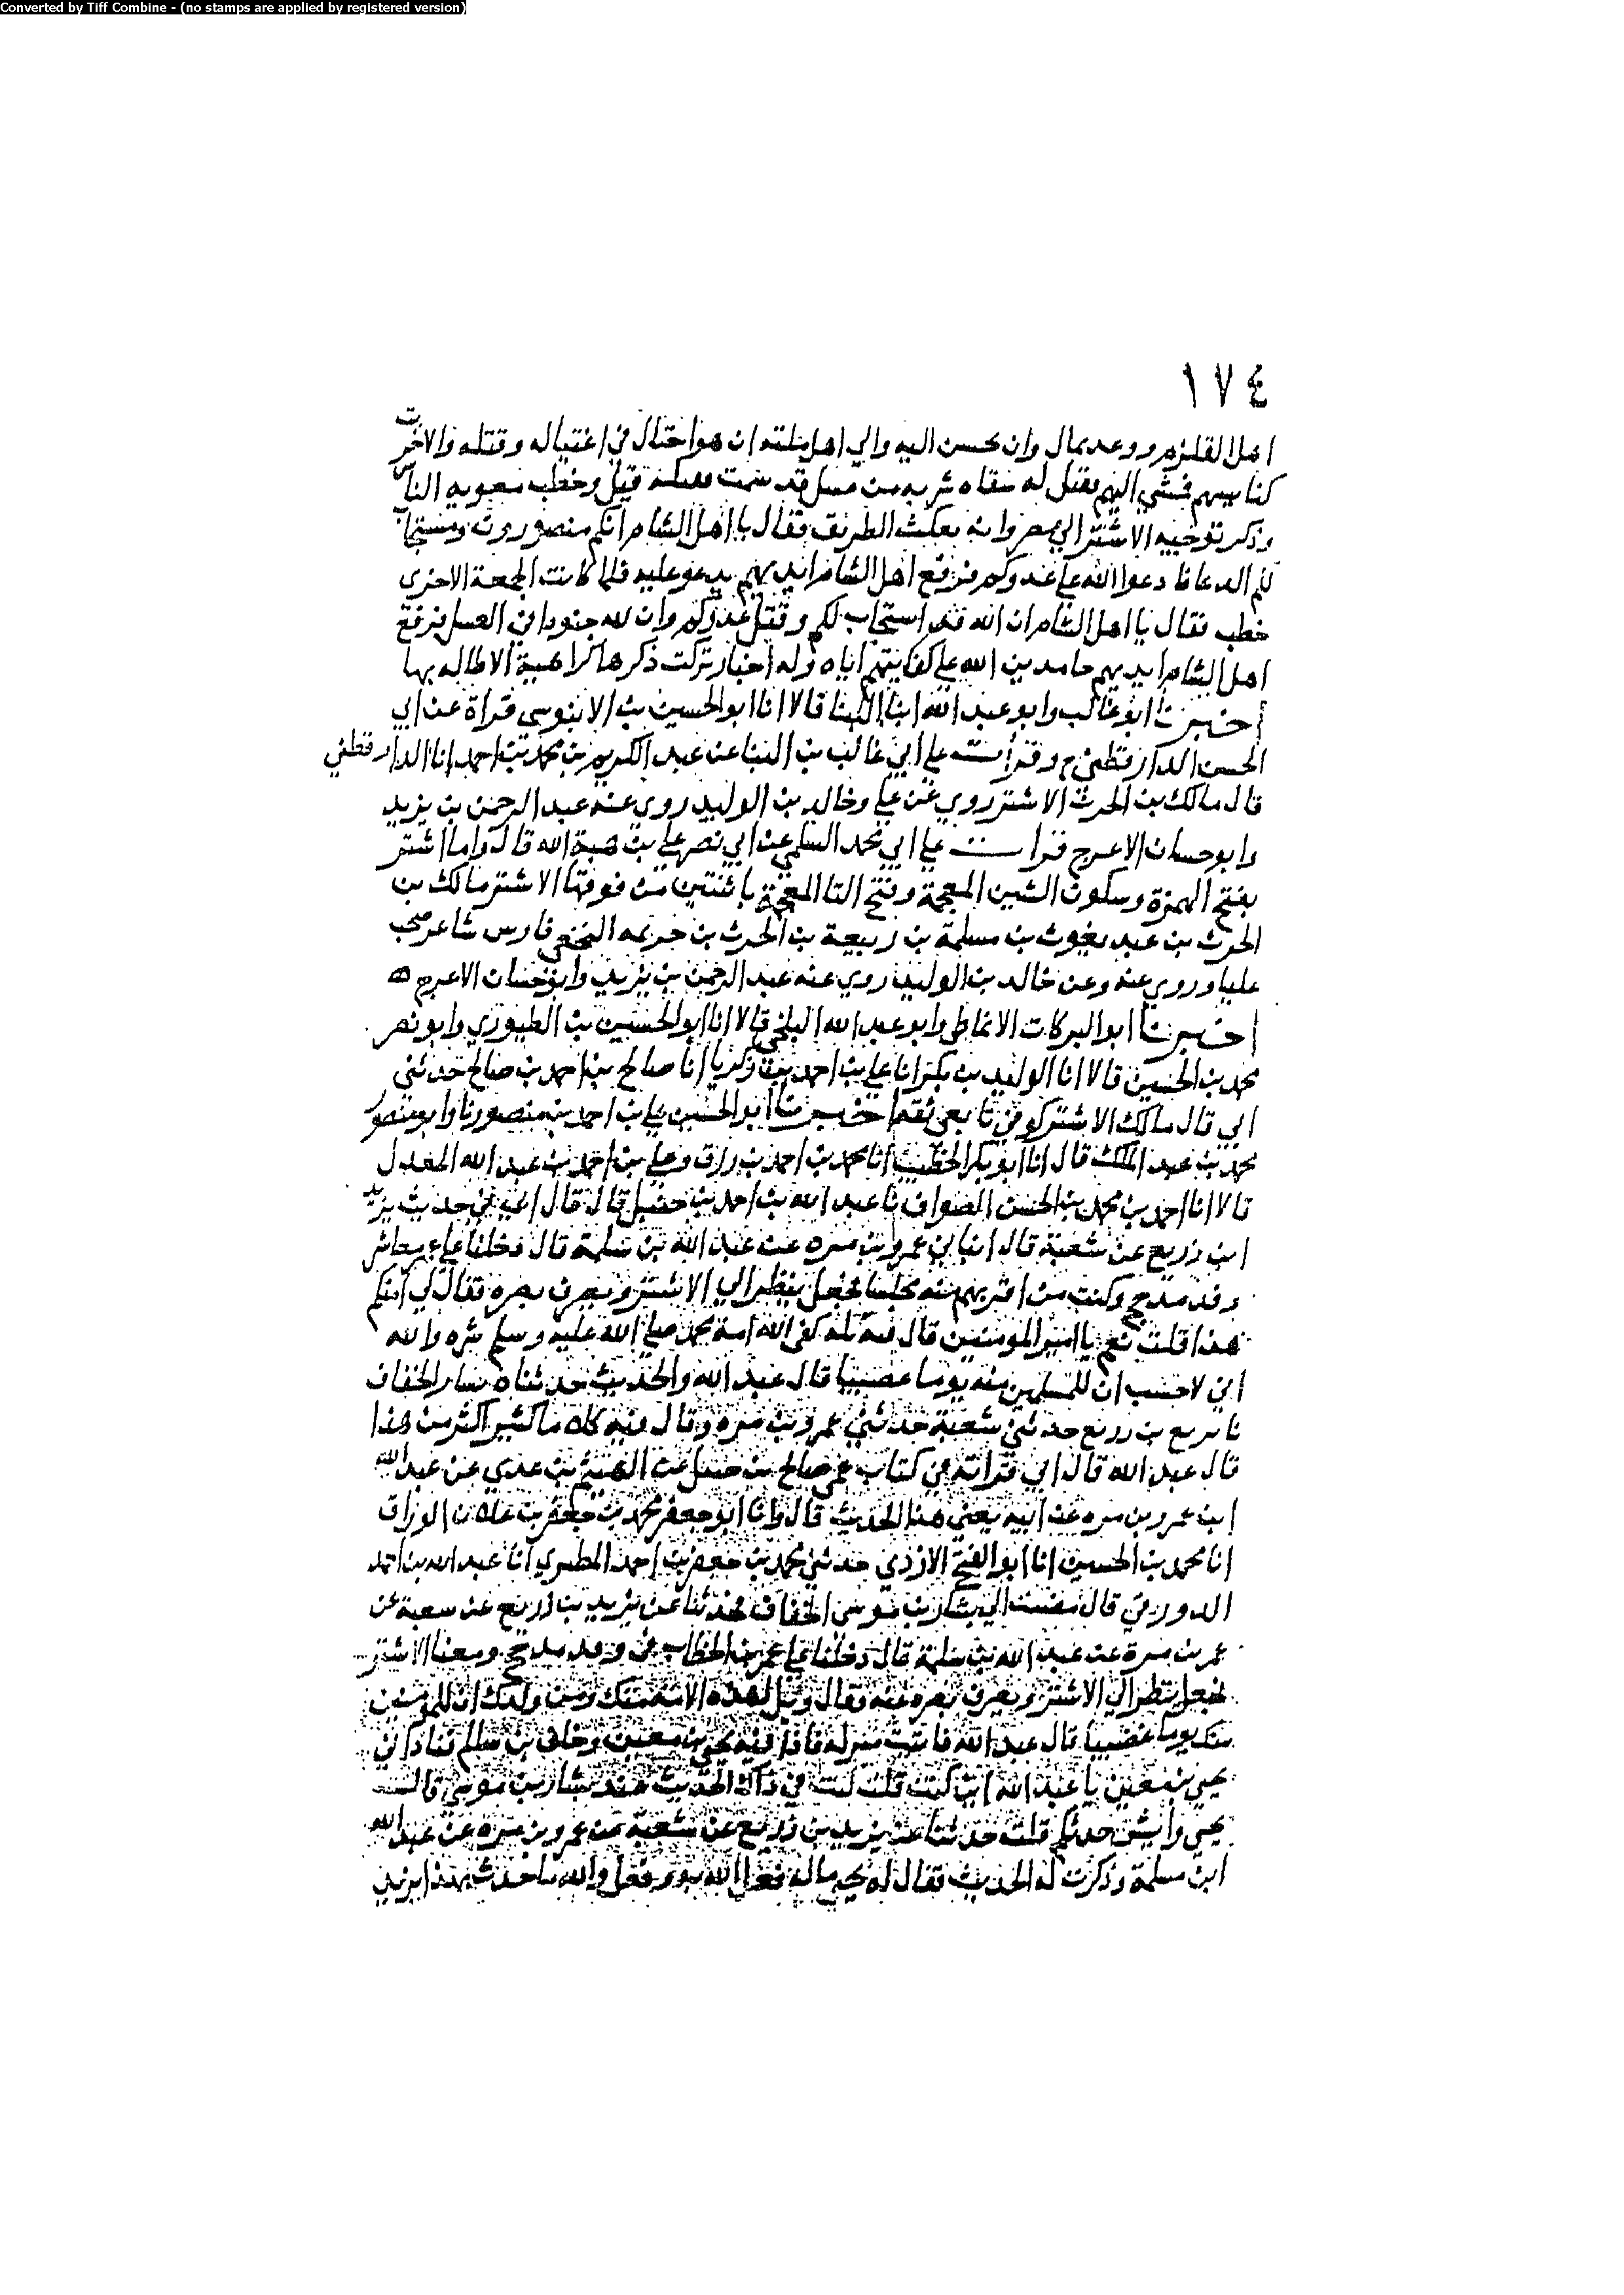 Converted by Tiff Combine - (no stamps are applied by registered version)
١٧٤
اهل القلزم ووعد بمال وان يحسن اليه والي اهل ان هو احتال في اغتياله وقتله والاخرت
كتا اليهم فقتل له سقاه شربه من عسل قد سمت قيل وخطب معويه الناس
وذكر توجيه الاشتر الي مصر وانه بعكث الطريق فقال يا اهل الشام انكم منصورون ومستجاب
لكم الدعا فادعوا الله على عدوكم فرفع اهل الشام ايديهم يدعو عليه فلما كانت الجمعة الاخرى
خطب فقال يا اهل الشام ان الله قد استجاب لكم وقتل عدوكم وان لله جنودا في العسل فرفع
اهل الشام ايديهم حامدين الله على كفايتهم اياه وله اخبار تركت ذكرها كراهية الاطاله بها
اخبرنا ابو غالب وابو عبد الله ابنا البنا قالا انا ابو الحسين بن الابنوسي قراة عن ابي
الحسن الدارقطني ح وقرات على ابي غالب بن البنا عن عبد الكريم بن محمد بن احمد انا الدارقطني
قال مالك بن الحرث الاشتر روي عن علي وخالد بن الوليد روي عنه عبد الرحمن بن يزيد
وابو حسان الاعرج قرات على ابي محمد السلمي عن ابي نصر علي بن هبة الله قال واما اشتر
بفتح الهمزة وسكون الشين المعجمة وفتح التا المعجمة باثنتين من فوقها الاشتر مالك بن
الحرث بن عبد يغوث بن مسلمة بن ربيعة بن الحرث بن خزيمه النخعي فارس شاعر صحب
عليا وروي عنه وعن خالد بن الوليد روي عنه عبد الرحمن بن يزيد وابو حسان الاعرج ه
اخبرنا ابو البركات الانماطي وابو عبد الله البلخي قالا انا ابو الحسين بن الطيوري وابو نصر
محمد بن الحسين قالا انا الوليد بن بكر انا علي بن احمد بن زكريا انا صالح بن احمد بن صالح حدثني
ابي قال مالك الاشتر كوفي تابعي ثقه اخبرنا ابو الحسن علي بن احمد بن منصور نا وابو منصور
محمد بن عبد الملك قال انا ابو بكر الخطيب انا محمد بن احمد بن رزق وعلي بن احمد بن عبد الله المعدل
قالا انا احمد بن محمد بن الحسن الصواف نا عبد الله بن احمد بن حنبل قال قال ابي في حديث يزيد
ابن زريع عن شعبة قال انباني عمرو بن مره عن عبد الله بن سلمة قال دخلنا على عمر معاشر
وفد مذحج وكنت من اقربهم منه مجلسا فجعل ينظر الي الاشتر ويصرف بصره فقال لي امنكم
هذا قلت نعم يا امير المومنين قال قاتله كفى الله امة محمد صلى الله عليه وسلم شره والله
اني لاحسب ان للمسلمين منه يوما عصيبا قال عبد الله والحديث حدثناه بشار الخفاف
نا يزيع بن زريع حدثني شعبة حدثني عمرو بن مره وقال فيه كله ما كثير اكثر من هذا
قال عبد الله قال ابي قراته في كتاب عمي صالح بن حنبل عن الهيثم بن عدي عن عبد الله
ابن عمرو بن مره عن ابيه يعني هذا الحديث قال وانا ابو جعفر محمد بن جعفر بن علان الوراق
انا محمد بن الحسين انا ابو الفتح الازدي حدثني محمد بن جعفر بن احمد المطيري انا عبد الله بن احمد
الدورقي قال مضيت الي بشار بن موسى الخفاف فحدثنا عن يزيد بن زريع عن سعبة عن
عمر بن مرة عن عبد الله بن سلمة قال دخلنا على عمر بن الخطاب في وفد مذحج ومعنا الاشتر
فجعل ينظر الي الاشتر ويصرف بصره عنه وقال ويل لهذه الامة منك ومن ولدك ان للمومنين
منك يوما عصيبا قال عبد الله فاتيت منزله فاذا فيه يحيى بن معين وخلف بن سالم فناداني
يحيى بن معين يا عبد الله اين كنت قلت كنت في ذاك الحديث عند بشار بن موسى قالت
يحيى وايش حدثكم قلت حدثنا عن يزيد بن زريع عن شعبة عن عمرو بن مره عن عبد الله
ابن سلمة وذكرت له الحديث فقال له يحيى ماله فعل الله به وفعل والله ما حدث بهذا يزيد